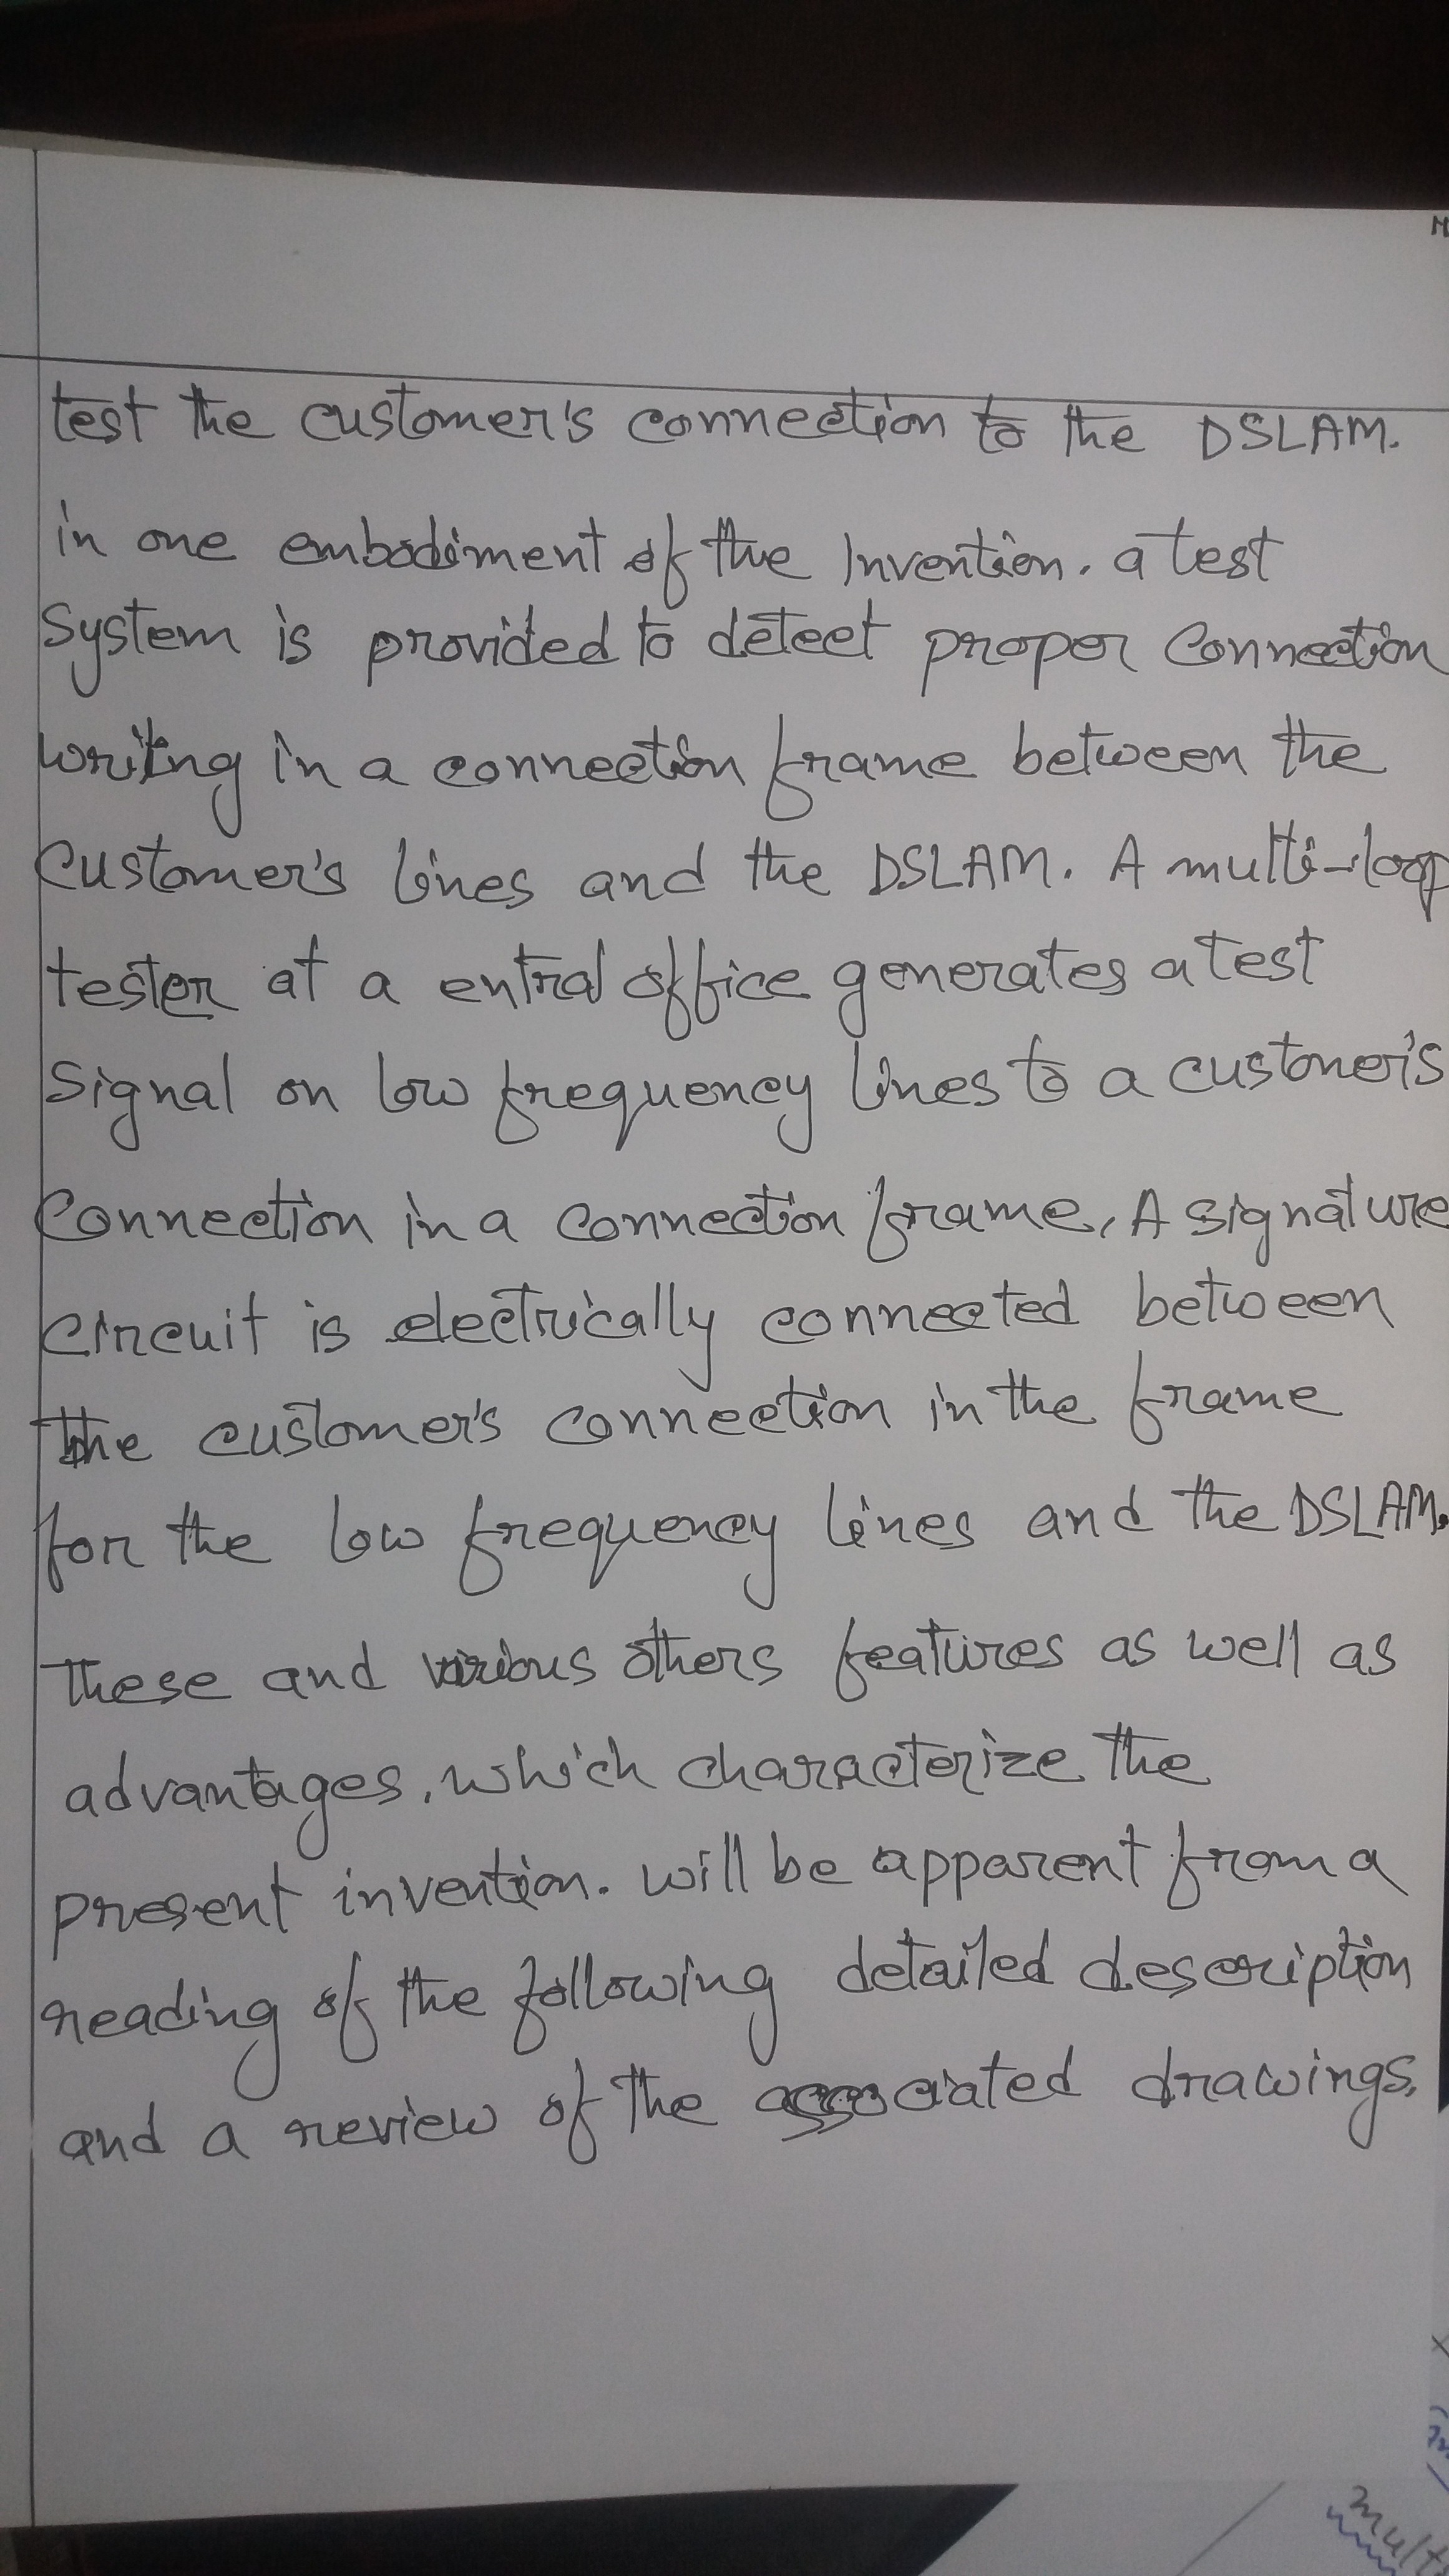 test the customer's connection to the DSLAM.
in one embodiment of the Invention. a test
System is provided to detect proper Connection
writing in a connection frame between the
Customer's lines and the DSLAM. A multi-loop
tester at a entral office generates a test
Signal on low frequency lines to a customer's
Connection in a connection frame, A signature
circuit is electrically connected between
the customer's connection in the frame
for the low frequency lines and the DSLAM.
These and various others features as well as
advantages, which characterize the
present invention. will be apparent from a
reading of the following detailed description
and a review of the associated drawings.